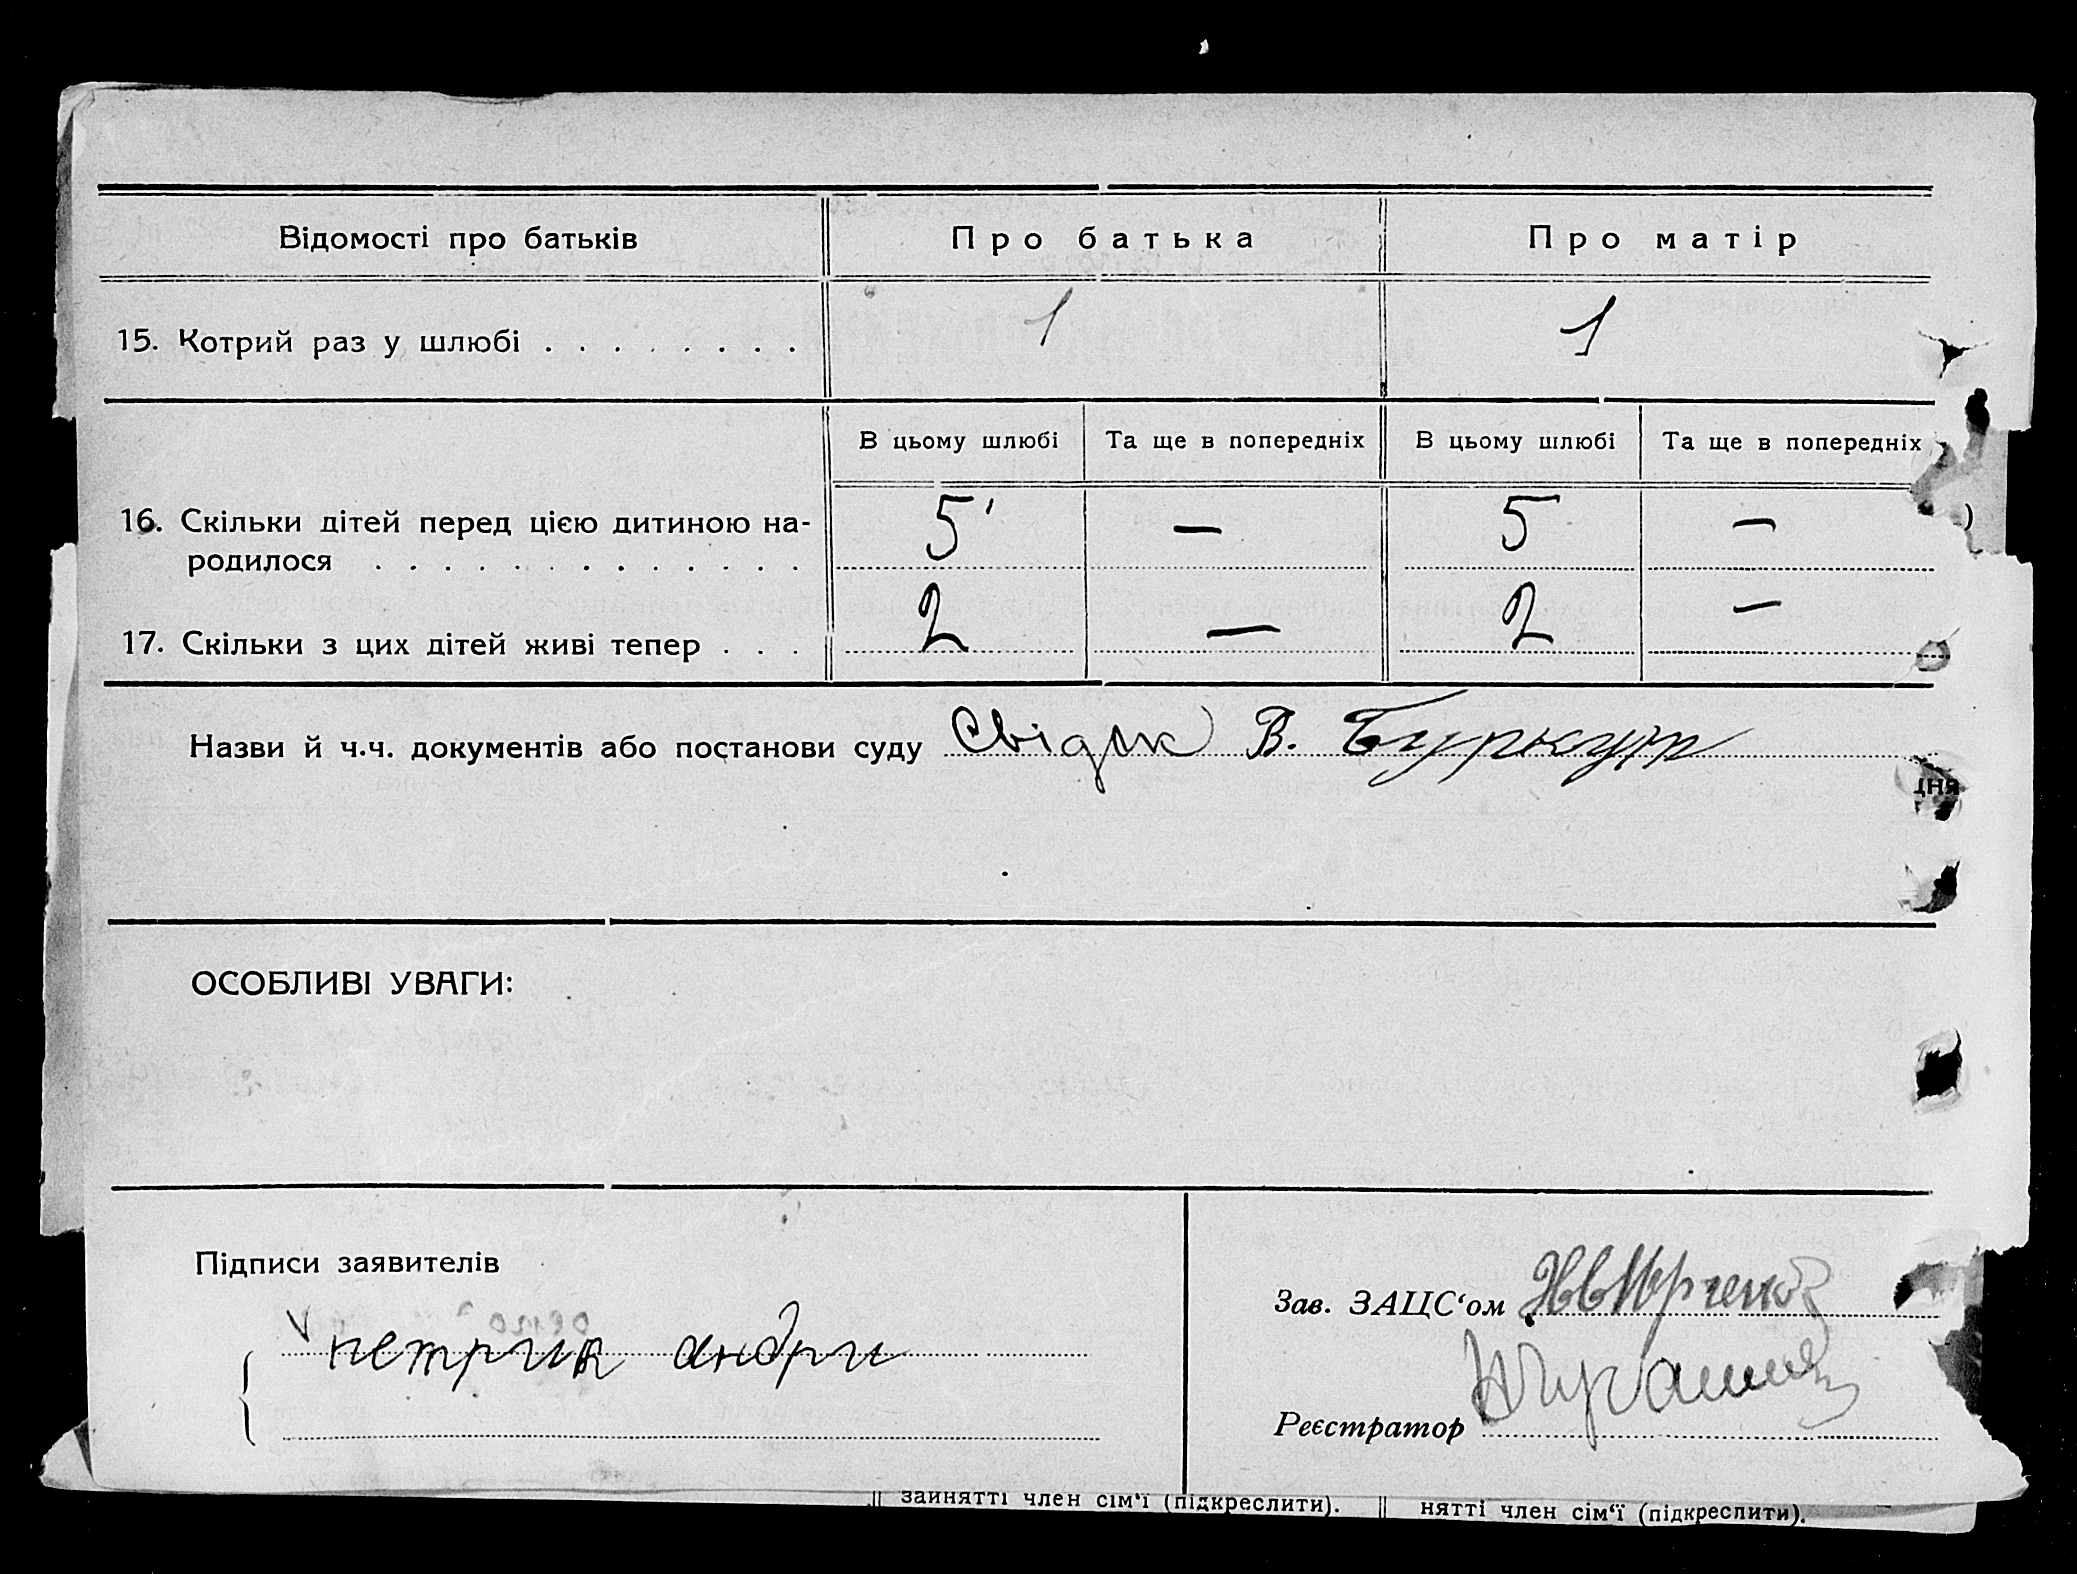 Відомості про батьків Про батька Про матір
15. Котрий раз у шлюбі . . . . . . . . 1 1
В цьому шлюбі Та ще в попередніх В цьому шлюбі Та ще в попередніх
16. Скільки дітей перед цією дитиною на- 5 — 5 —
родилося . . . . . . . . . . . . .
17. Скільки з цих дітей живі тепер . . . 2 — 2 —
Назви й ч.ч. документів або постанови суду Свідок В. Буркут
дня
ОСОБЛИВІ УВАГИ:
Підписи заявителів
петрик андри
Зав. ЗАЦС‘ом
Реєстратор
зайнятті член сім‘ї (підкреслити). нятті член сім‘ї (підкреслити).